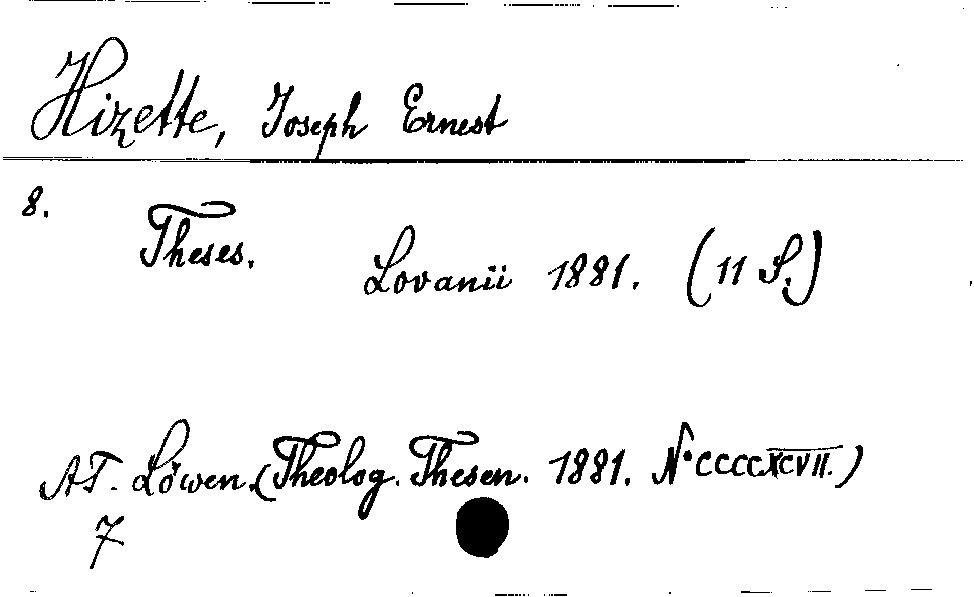 Hizette, Joseph Ernest
8.
Theses. Lovanii 1881. (11 S.)
AT. Löwen. (Theolog. Thesen. 1881. N° CCCCXCVII.)
7